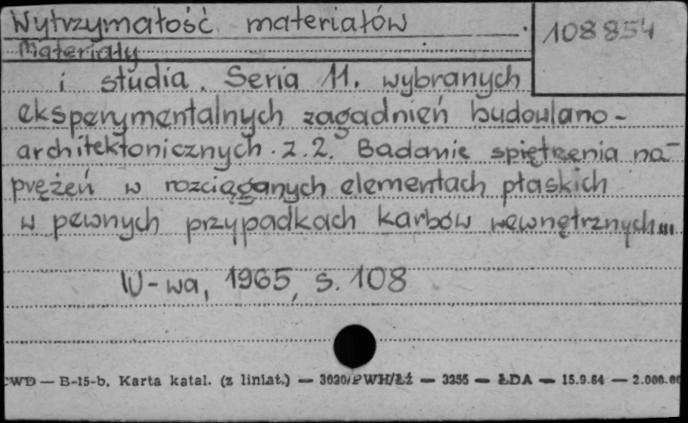 Wytrzymałość materiałów
108 854
Materiały
i studia. Seria 11. wybranych
eksperymentalnych zagadnień budowlano-
architektonicznych. z. 2. Badanie spiętrzenia na-
prężeń w rozciąganych elementach płaskich
w pewnych przypadkach karbów wewnętrznych...
W-wa, 1965, s. 108
CWD — B-15-b. Karta katal. (z liniat.) — 3020/PWH/Łź — 3255 — ŁDA — 15.9.64 — 2.000.00